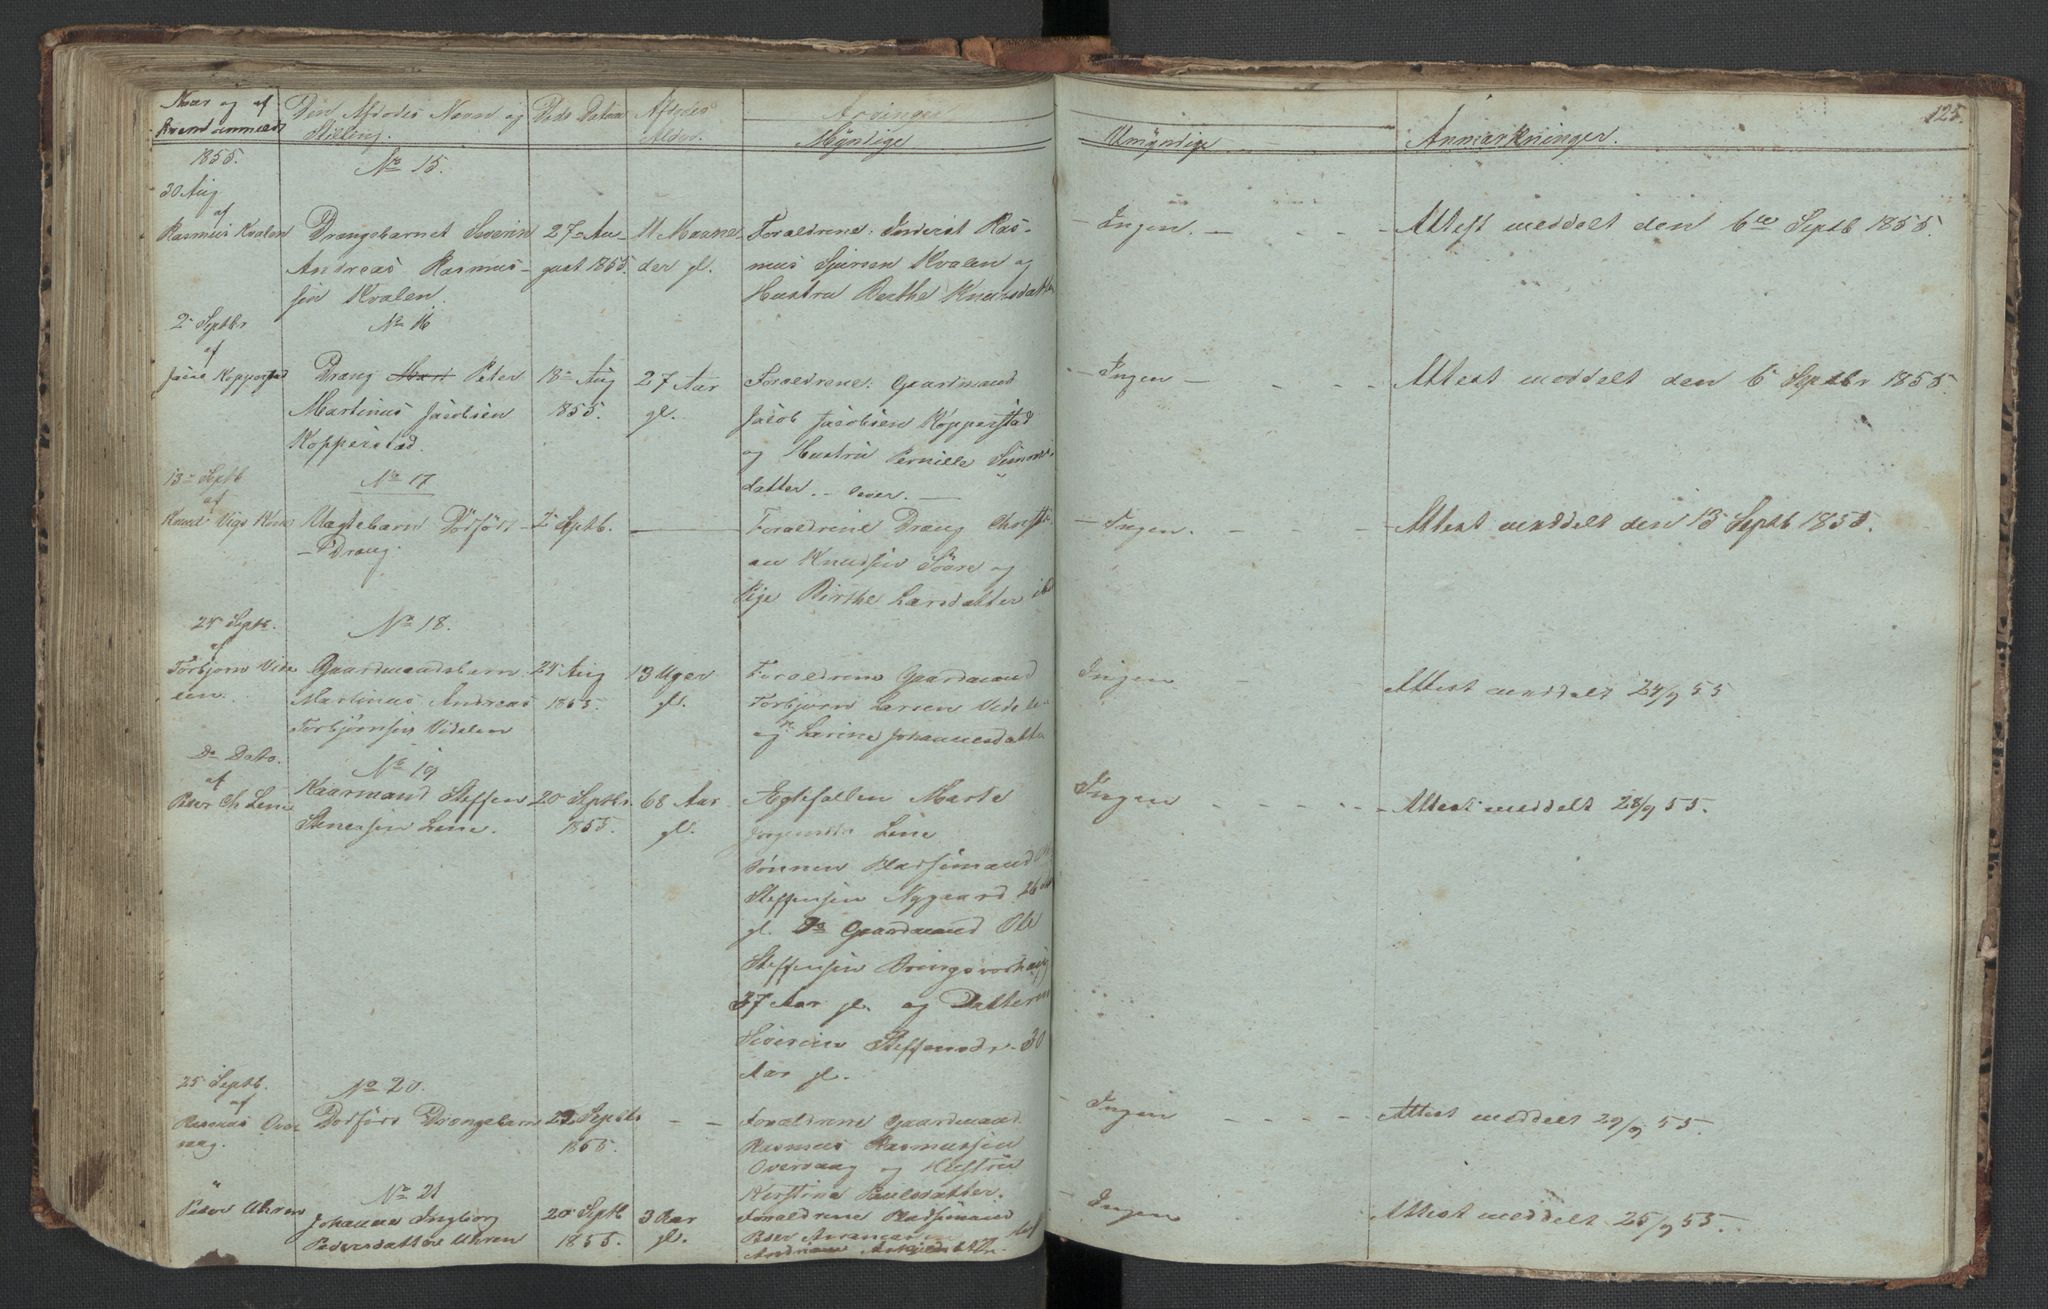 Naar og af
hvem anmeldt
Den Afdødes Navn og
Stilling.
Døds Datum
Afdødes
Alder.
Arvinger
Myndige
Umyndige
Anmærkninger.
125.
1855.
30 Aug
af
Rasmus Kvalen
No 15.
Drængebarnet Severin
Andreas Rasmus-
sen Kvalen.
27 Au-
gust 1855.
11 Maane-
der gl.
Forældrene: Inderst Ras-
mus Sjursen Kvalen og
Hustru Berthe Knudsdatter
Ingen.
Attest meddelt den 6te Septb 1855.
2 Septbr
af
Jacob Kopperstad
No 16
Dræng Mart Peter
Martinus Jacobsen
Kopperstad.
18 Aug
1855.
27 Aar
gl.
Forældrene: Gaardmand
Jacob Jacobsen Kopperstad
og Hustru Pernille Simons-
datter.
Ingen
Attest meddelt den 6 Septbr 1855.
13 Septb
af
Knud
No 17
Uægtebarn Dödfödt
Dræng.
2 Septb.
Forældrene Dræng Christi-
an Knudsen og
Pige Birthe Larsdatter ibd
Ingen.
Attest meddelt den 13 Septb 1855.
24 Septb.
af
Torbjørn Vide-
len.
No 18.
Gaardmandsbarn
Martinus Andreas
Torbjørnsen Videlen
24 Aug
1855.
13 Uger
gl.
Forældrene Gaardmand
Torbjørn Larsen Videle
og Larine Johannesdatter
Ingen
Attest meddelt 24/9 55
Do Dato.
af
Peder Lene
No 19
Kaarmand Steffen
Stenersen Lene.
20 Septbr
1855.
68 Aar
gl.
Ægtefællen Marte
Lene
Sönnen Pladsmand
Steffensen Nygaard 26
gl. Do Gaardmand Ole
Steffensen
37 Aar gl. og Datteren
Severine Steffensdr 30
Aar gl.
Ingen
Attest meddelt 28/9 55.
25 Septb.
af
Rasmus Over-
vaag.
No 20.
Dödfödt Drængebarn
22 Septbr
1855.
Forældrene Gaardmand
Rasmus Rasmussen
Overvaag og Hustru
Kirstina Paulsdatter.
Ingen
Attest meddelt 29/9 55.
Peder Uhren
No 21
Johanne Ingborg
Pedersdatter Uhren
20 Septb
1855.
3 Aar
gl.
Forældrene Pladsmand
Peder
Ingen
Attest meddelt 25/9 55.